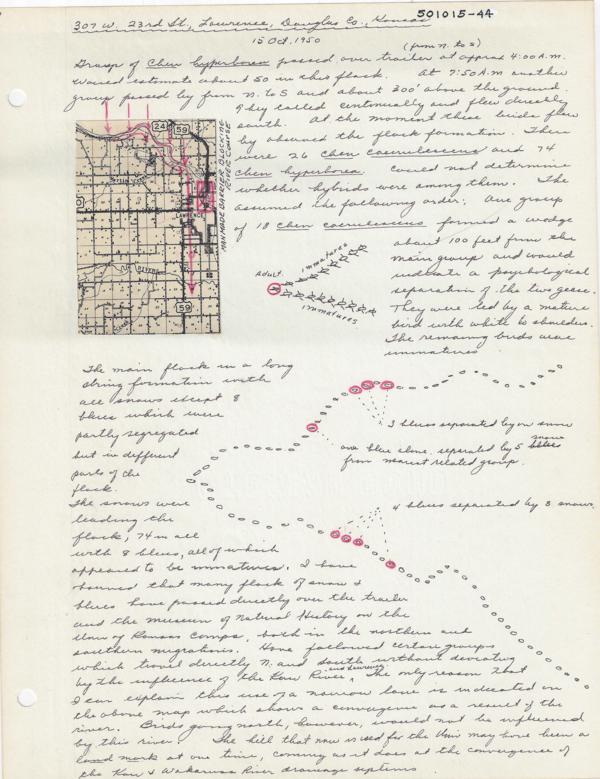 501015-44
307 W. 23rd St., Lawrence, Douglas Co., Kansas
15 Oct. 1950
(from n. to s)
Group of Chen hyperborea passed over trailer at approx 4:00 A.M.
Would estimate about 50 in this flock. At 7:50 A.M. another
group passed by from n. to S and about 300' above the ground.
They called continually and flew directly
south. At the moment these birds flew
by observed the flock formation. There
were 26 Chen caerulescens and 74
Chen hyperborea. Could not determine
whether hybrids were among them. The
assumed the following order: One group
of 18 Chen caerulescens formed a wedge
about 100 feet from the
main group and would
indicate a psychological
separation of the two geese.
They were led by a mature
bird with white to shoulders.
The remaing birds were
immatures
24
59
MAN MADE BARRIER BLOCKING
RIVER COURSE
LAWRENCE
59
Adult.
immatures
immatures
The main flock in a long
string formation with
all snows except 8
blues which were
partly segregated
but in different
parts of the
flock.
The snows were
leading the
flock, 74 in all
with 8 blues, all of which
appeared to be immatures. I have
observed that many flock of snow &
blues have passed directly over the trailer
and the museum of Natural History on the
Univ of Kansas Campus, both in the northern and
southern migrations. Have followed certain groups
which travel directly N. and south without deviating
by the influence of the Kaw River, The only reason that
I can explain this use of a narrow lane is indicated on
the above map which shows a convergence as a result of the
river. Birds going north, however, would not be influenced
by this river. The hill that now is used for the Univ may have been a
land mark at one time, coming as it does at the convergence of
the Kaw & Wakarusa River drainage systems
3 blues separated by one snow
one blue alone, separated by 5 blues snow
from nearest related group.
4 blues separated by 3 snows.